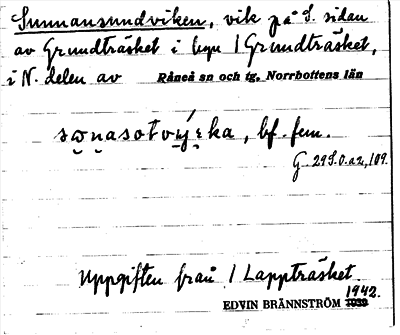 Sunnansundviken, vik på S. sidan
av Grundträsket i byn / Grundträsket,
i N. delen av Råneå sn och tg, Norrbottens län
bf. fem.
G 29 S.
Uppgiften från / Lappträsket.
1942.
EDVIN BRÄNNSTRÖM 1939